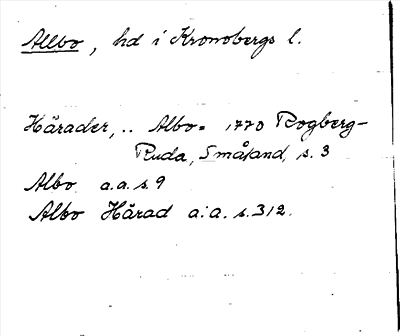 Allbo, hd i Kronobergs l.
Härader, .. Albo= 1770 Rogberg-
Ruda, Småland, s. 3
Albo a.a. s. 9
Albo Härad a.a. s. 312.